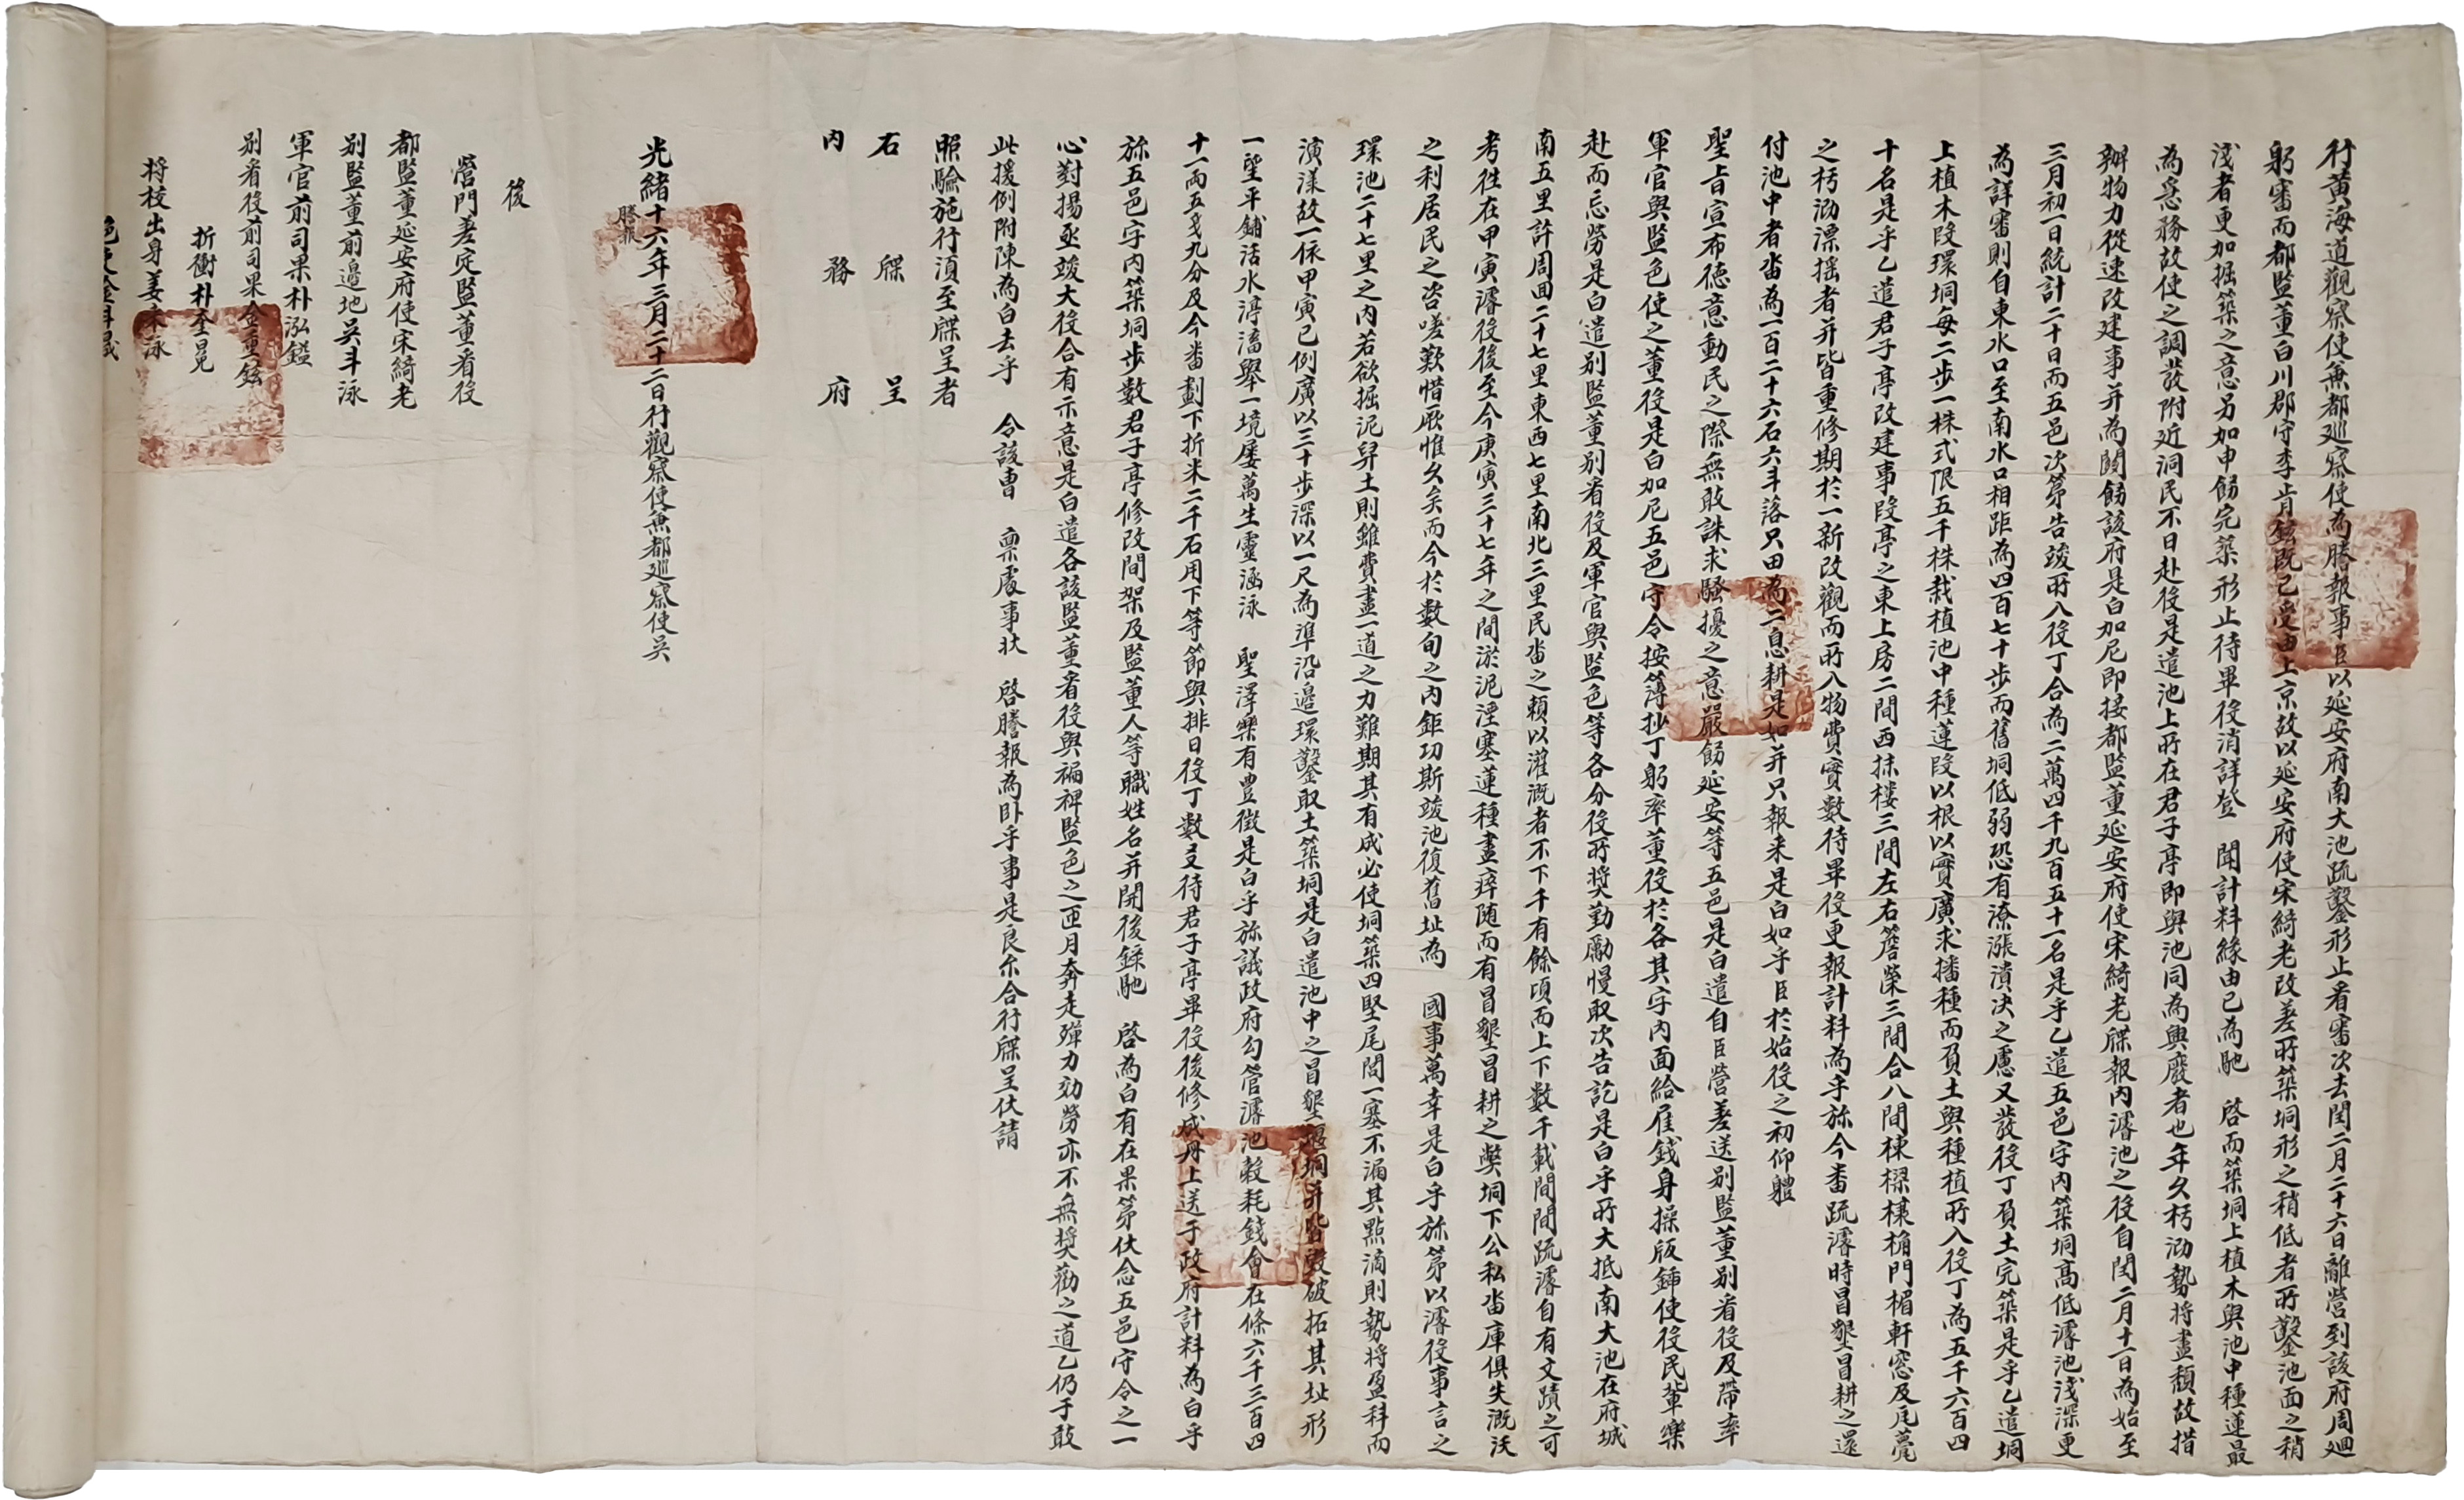 行黃海道觀察使兼都巡察使為謄報事臣以延安府南大池疏鑿形止看審次去閏二月二十六日離營到該府周廻
躬審而都監董白川郡守李肯鉉既已受由上京故以延安府使宋綺老改差所築垌形之稍低者所鑿池面之稍
淺者更加掘築之意另加申飭完築形止待畢役消詳登 聞計料緣由已為馳 啓而築垌上植木與池中種蓮最
為急務故使之調發附近洞民不日赴役是遣池上所在君子亭即與池同為興廢者也年久朽泐勢將盡頹故措
辦物力從速改建事并為關飭該府是白加尼即接都監董延安府使宋綺老牒報內濬池之役自閏二月十一日為始至
三月初一日統計二十日而五邑次第告竣所入役丁合為二萬四千九百五十一名是乎乙遣五邑字內築垌高低濬池淺深更
為詳審則自東水口至南水口相距為四百七十步而舊垌低弱恐有潦漲潰決之慮又發役丁負土完築是乎乙遣垌
上植木段環垌每二步一株式限五千株栽植池中種蓮段以根以實廣求播種而負土與種植所入役丁為五千六百四
十名是乎乙遣君子亭改建事段亭之東上房二間西抹樓三間左右簷榮三間合八間棟樑樑桷門楣軒窓及瓦甍
之朽泐漂搖者并皆重修期於一新改觀而所入物費實數待畢役更報計料為乎旀今番疏濬時冒墾冒耕之還
付池中者畓為一百二十六石六斗落只田為二息耕是如并只報来是白如乎臣於始役之初仰軆
聖旨宣布德意動民之際無敢誅求騷擾之意嚴飭延安等五邑是白遣自臣營差送別監董別看役及帶率
軍官與監色使之董役是白加尼五邑守令按簿抄丁躬率董役於各其字內面給雇錢身操版鍤使役民輩樂
赴而忘勞是白遣別監董別看役及軍官與監色等各分役所奬勤勵慢取次告訖是白乎所大抵南大池在府城
南五里許周回二十七里東西七里南北三里民畓之賴以灌溉者不下千有餘頃而上下數千載間間疏濬自有文蹟之可
考徃在甲寅濬役後至今庚寅三十七年之間淤泥湮塞蓮種盡瘁随而有冒墾冒耕之獘垌下公私畓庫俱失溉沃
之利居民之咨嗟歎惜厥惟久矣而今於數旬之內鉅功斯竣池復舊址為 國事萬幸是白乎旀第以濬役事言之
環池二十七里之內若欲掘泥舁土則雖費盡一道之力難期其有成必使垌築四堅尾閭一塞不漏其點滴則勢將盈科而
演漾故一依甲寅已例廣以三十步深以一尺為準沿邊環鑿取土築垌是白遣池中之冒墾堰垌并皆毀破拓其址形
一望平鋪活水渟滀舉一境屢萬生靈涵泳 聖澤樂有豊徵是白乎旀議政府勾管濬池穀耗錢會在條六千三百四
十一兩五戔九分及今番劃下折米二千石用下等節與排日役丁數爻待君子亭畢役後修成冊上送于政府計料為白乎
旀五邑字內築垌步數君子亭修改間架及監董人等職姓名并開後錄馳 啓為白有在果第伏念五邑守令之一
心對揚亟竣大役合有示意是白遣各該監董看役與褊裨監色之匝月奔走殫力効勞亦不無奬勸之道乙仍于敢
此援例附陳為白去乎 令該曹 稟處事状 啓謄報為卧乎事是良尔合行牒呈伏請
照驗施行須至牒呈者
右 牒 呈
內 務 府
光緒十六年三月二十二日行觀察使兼都巡察使吳
謄報
後
營門差定監董看役
都監董延安府使宋綺老
別監董前邊地吳斗泳
軍官前司果朴泓鎰
別看役前司果金重鉉
折衝朴奎冕
将校出身姜来泳